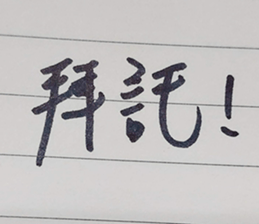 拜託!